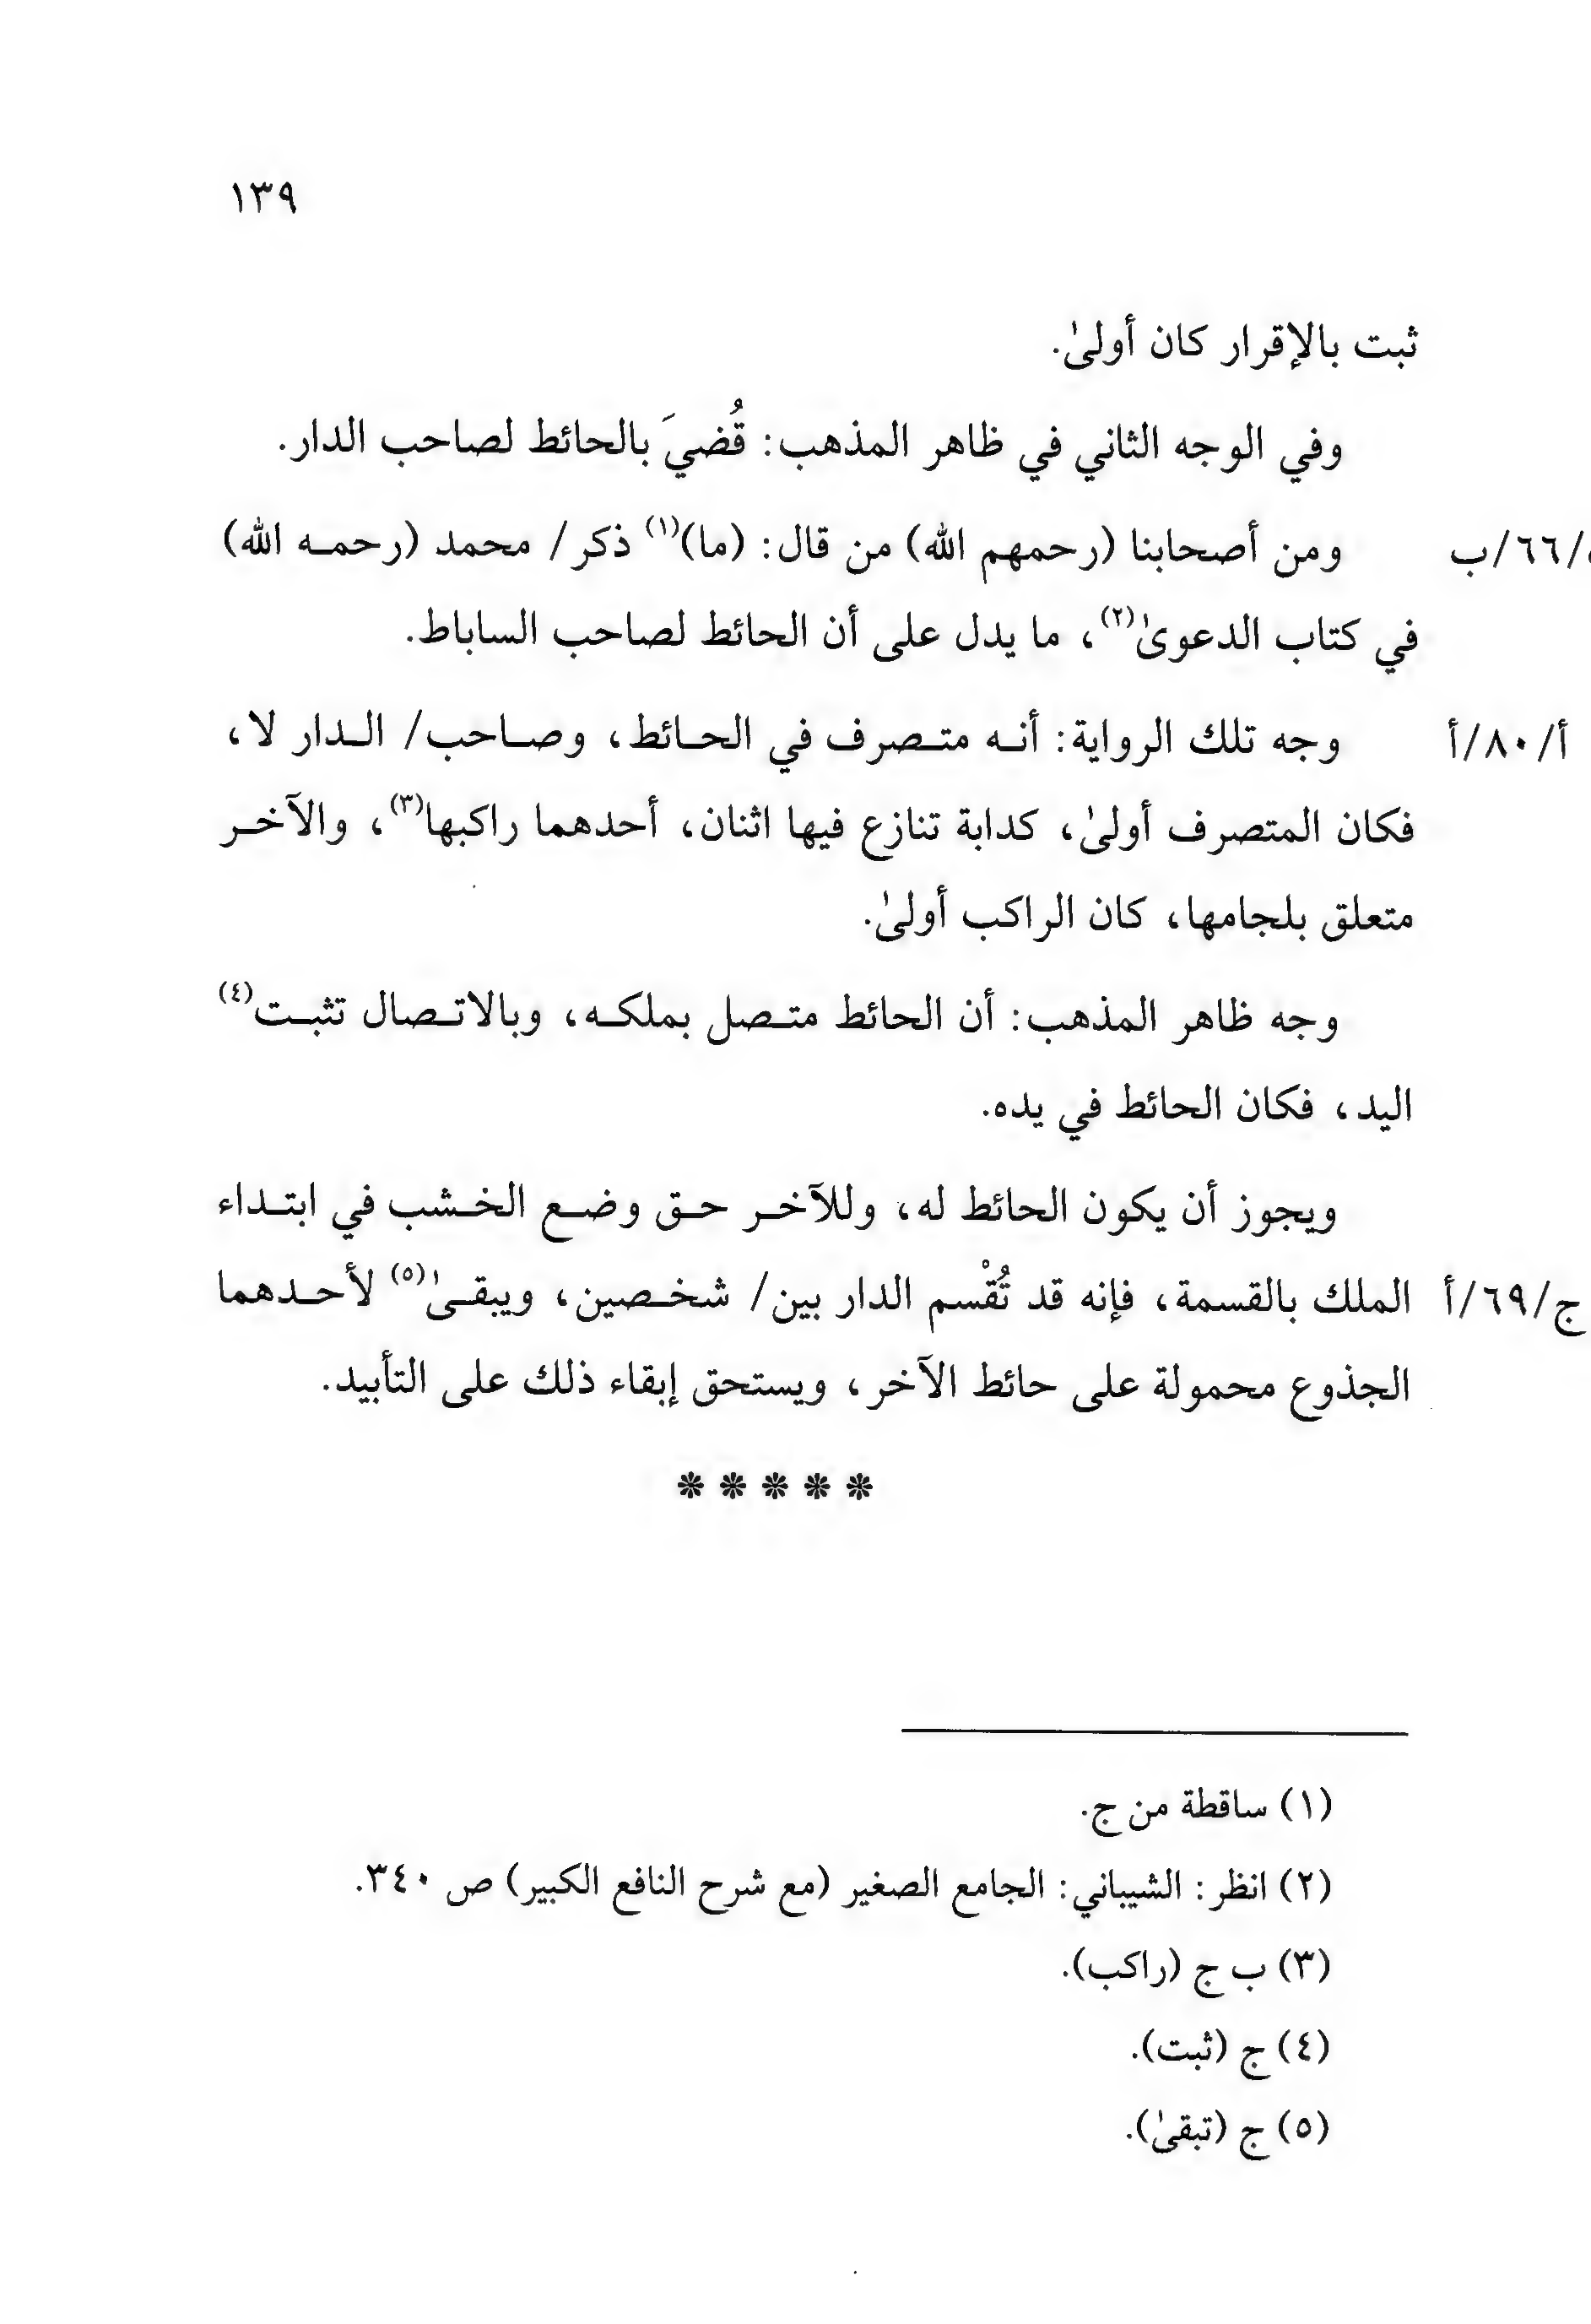 ١٣٩
ثبت بالإقرار كان أولىٰ.
وفي الوجه الثاني في ظاهر المذهب: قُضيَ بالحائط لصاحب الدار.
ومن أصحابنا (رحمهم الله) من قال: (ما)(١) ذكر/ محمد (رحمه الله)
/٦٦/ب
في كتاب الدعوىٰ(٢)، ما يدل على أن الحائط لصاحب الساباط.
وجه تلك الرواية: أنه متصرف في الحائط، وصاحب/ الدار لا،
أ/٨٠/أ
فكان المتصرف أولىٰ، كدابة تنازع فيها اثنان، أحدهما راكبها(٣)، والآخر
متعلق بلجامها، كان الراكب أولىٰ.
وجه ظاهر المذهب: أن الحائط متصل بملكه، وبالاتصال تثبت(٤)
اليد، فكان الحائط في يده.
ويجوز أن يكون الحائط له، وللآخر حق وضع الخشب في ابتداء
ج/٦٩/أ
الملك بالقسمة، فإنه قد تُقْسم الدار بين/ شخصين، ويبقىٰ(٥) لأحدهما
الجذوع محمولة على حائط الآخر، ويستحق إبقاء ذلك على التأبيد.
*****
(١) ساقطة من ج.
(٢) انظر: الشيباني: الجامع الصغير (مع شرح النافع الكبير) ص ٣٤٠.
(٣) ب ج (راكب).
(٤) ج (ثبت).
(٥) ج (تبقىٰ).